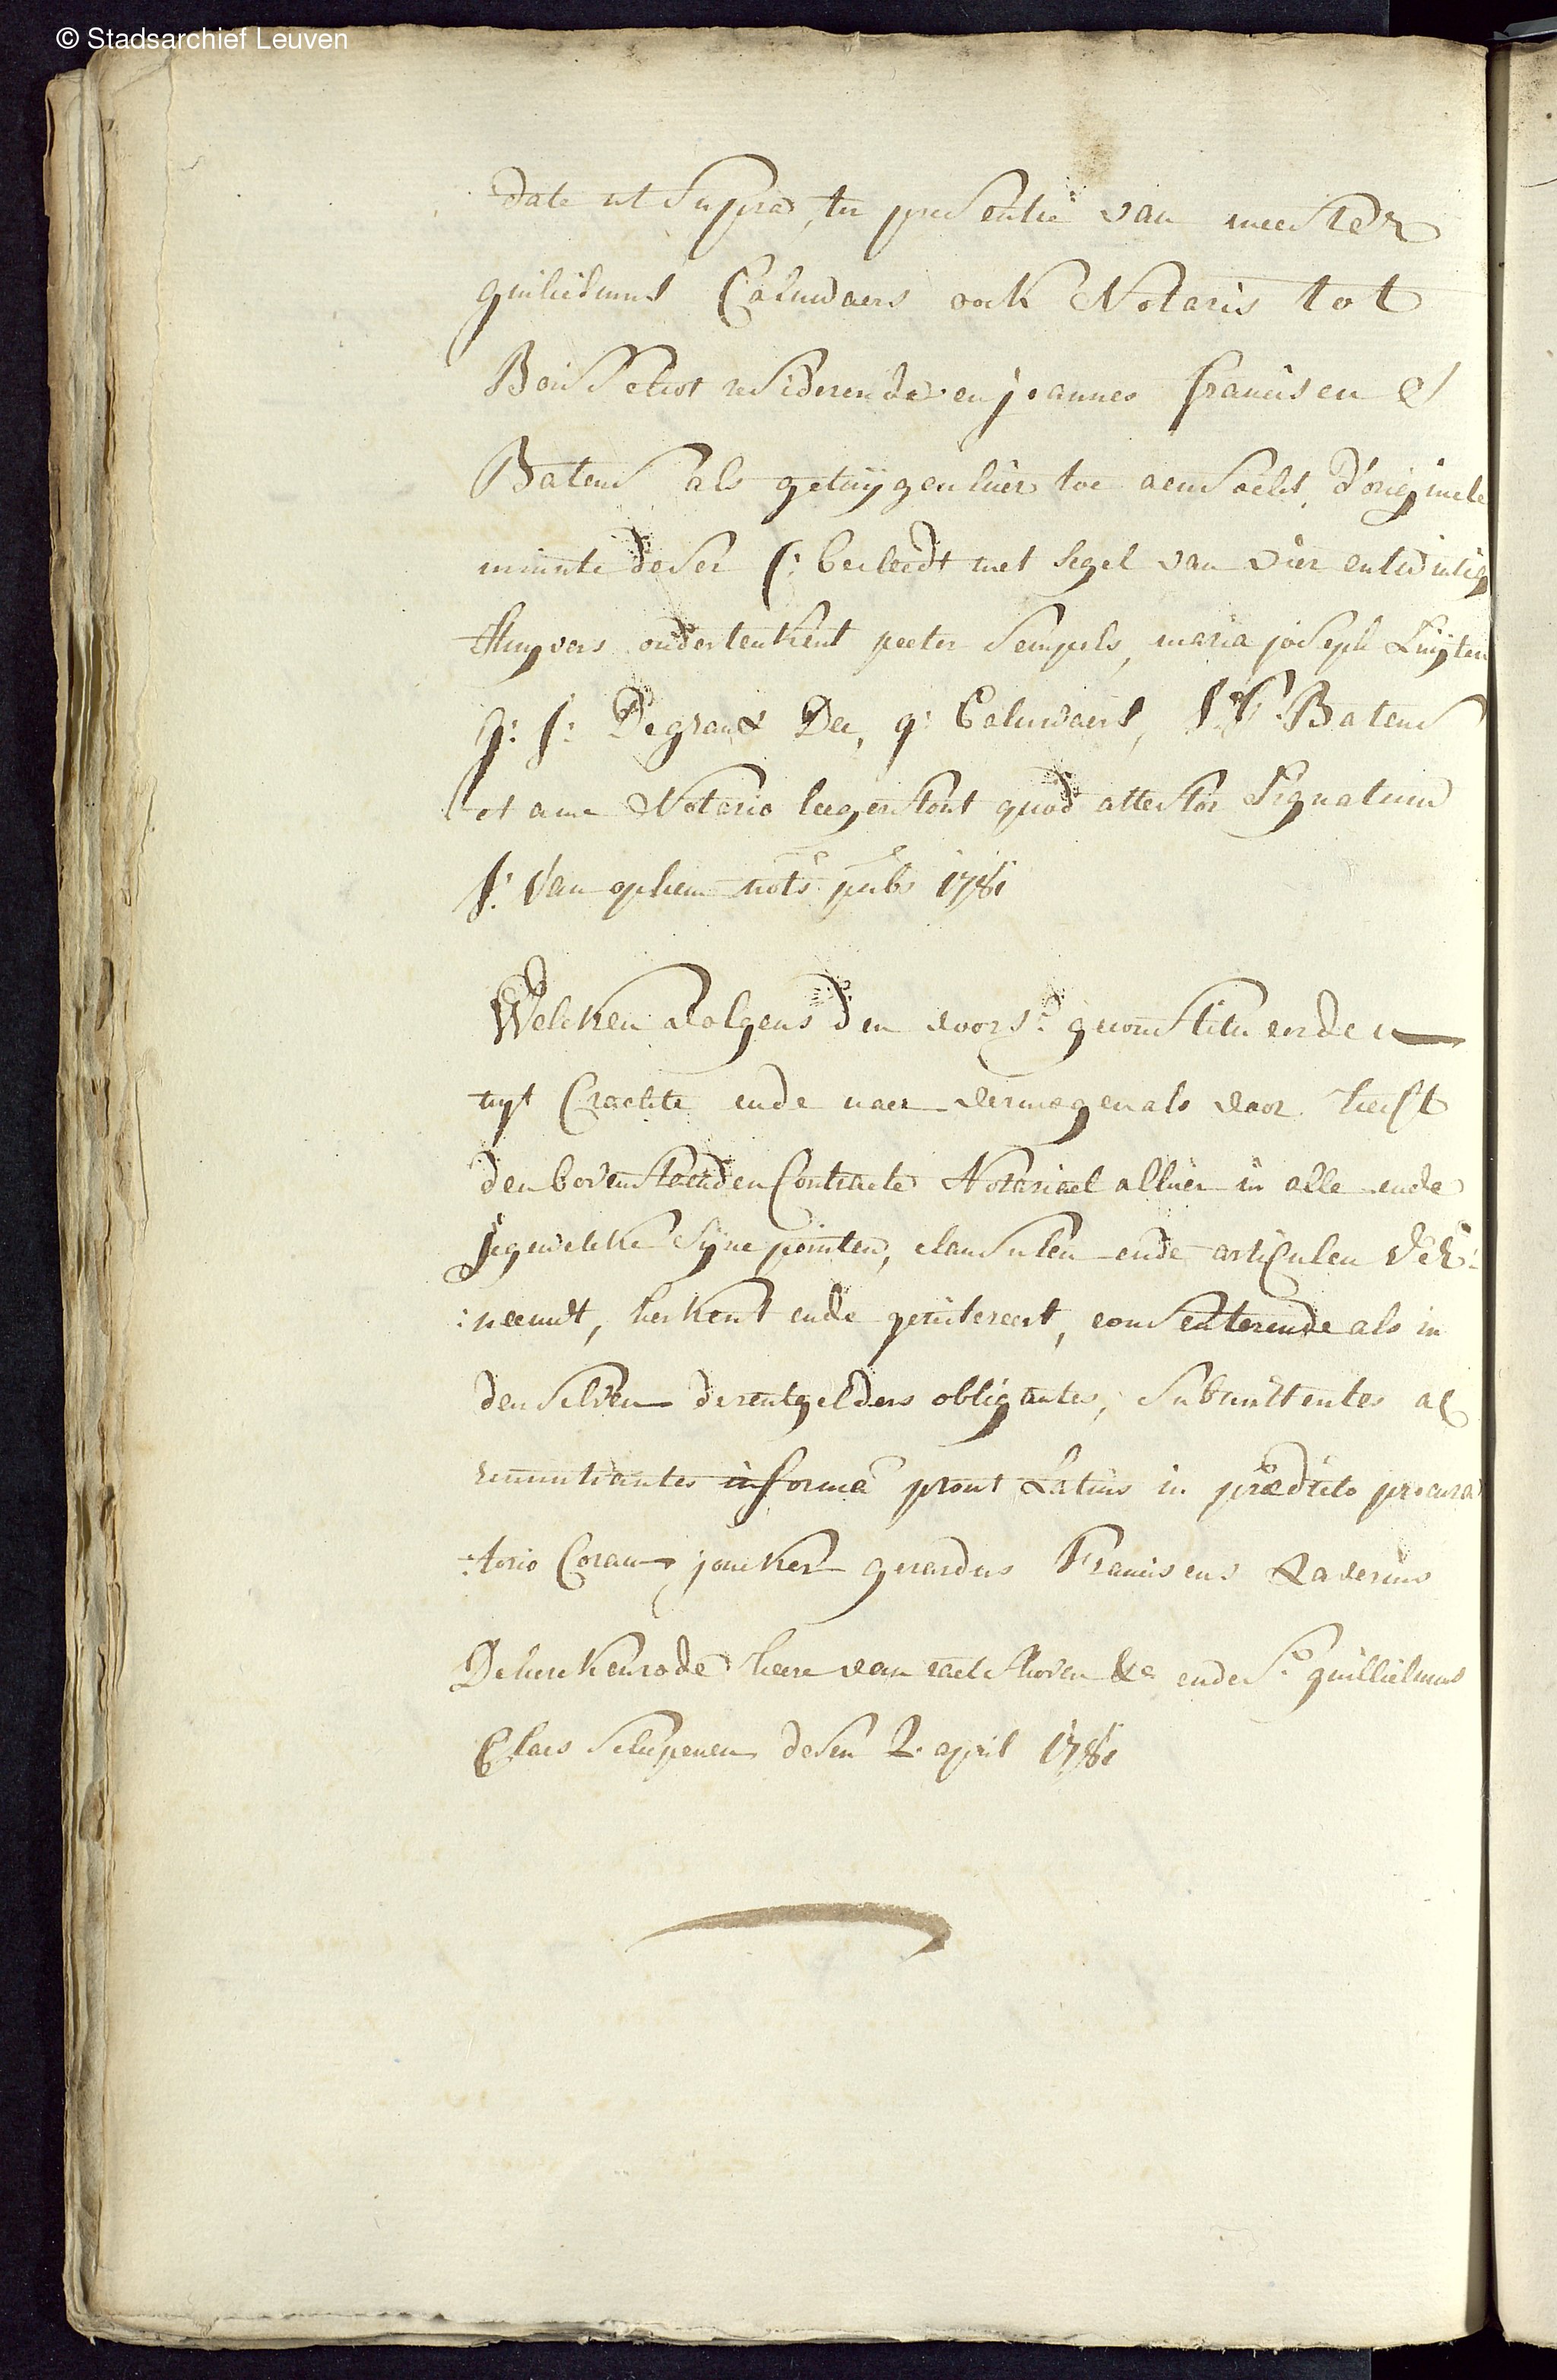 © Stadsarchief Leuven
date ut supra, ter presentie van meester
guilielmus Caluwaers oock Notaris tot
Boisschot residerende en joannes franciscus
Batens als getuygen hier toe aensocht, d'originele
minute deser (: becleedt met segel van vier entwintig
stuyvers ondertekent peeter Sempels, maria joseph Luyten
J: f: Degraux Dee, g: Caluwaers, J: F: Batens
et ame Notario leegerstont quod attestor Signatum
J: Van ophem nots pubs 1781
Welcken volgens den voors: geconstitueerden
uyt Crachte ende naer vermogen als voor heeft
den bovenstaenden Contracte Notariael alhier in alle ende
jegewelcke syne pointen, clausulen ende articulen ver:
:nieuwt, herkent ende gereitereert, consenterende als in
den selven derentgelders obligantes, submittentes ac
renuntiantes in forma prout Latius in prædicto procura
:torio Coram joncker gerardus Franciscus Xaverius
De herckenrode heere van raetshoven &a ende Sr guillielmus
Claes schepenen desen 2 april 1781